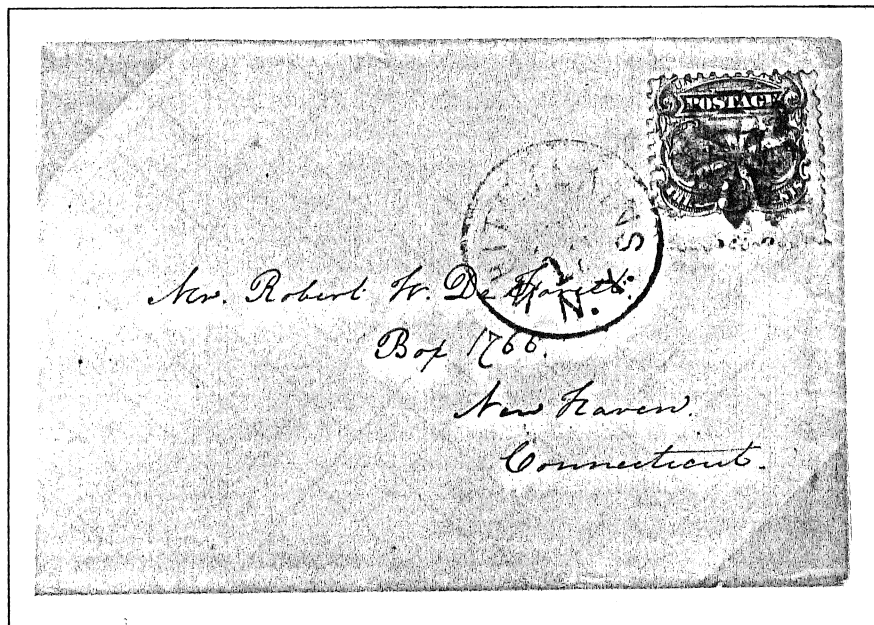 POSTAGE
N.Y.
Mr. Robert W. De Forest.
Box 1766.
New Haven.
Connecticut.